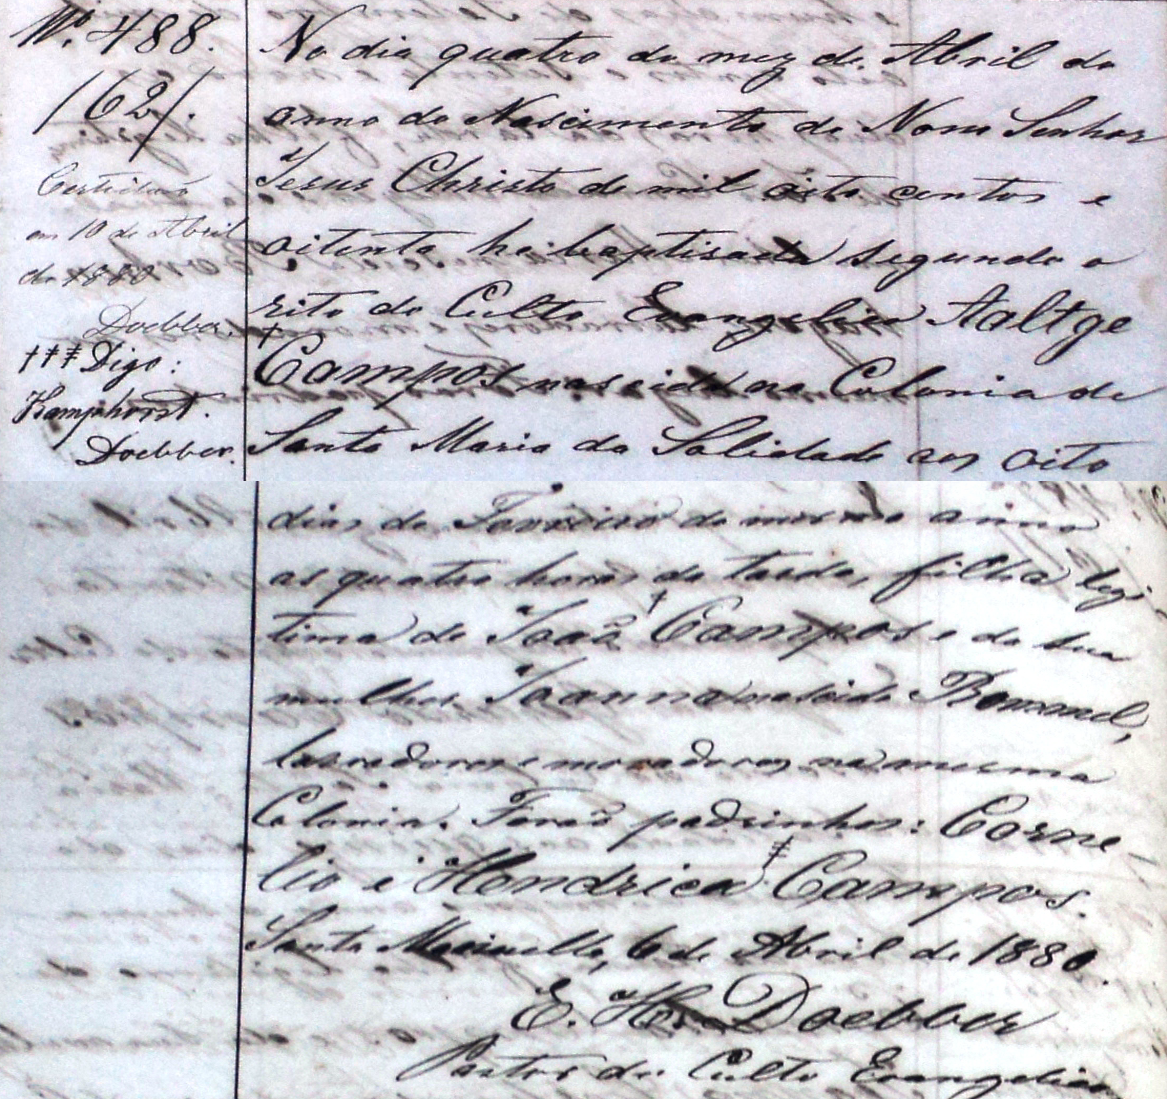 Nº 488.
/62/.
Certidão
em 10 de Abril
de 1880
Doebber.
††‡ Digo:
Kamphorst.
Doebber.
No dia quatro do mez de Abril do
anno do Nascimento de Nosso Senhor
Jesus Christo de mil oito centos e
oitenta foi baptisada segundo o
rito do Culto Evangelico Aaltge
† Campos nascida na Colonia de
Santa Maria da Solidade aos oito
dias de Janeiro do mesmo anno
as quatro horas da tarde, filha legi-
tima de João † Campos e de sua
mulher Joanna nascida
lavradores e moradores na mesma
Colonia. Forão padrinhos: Corne-
lio e Hendrica ‡ Campos.
Santa 6 de Abril de 1880.
E. H. Doebber
Pastor do Culto Evangelico